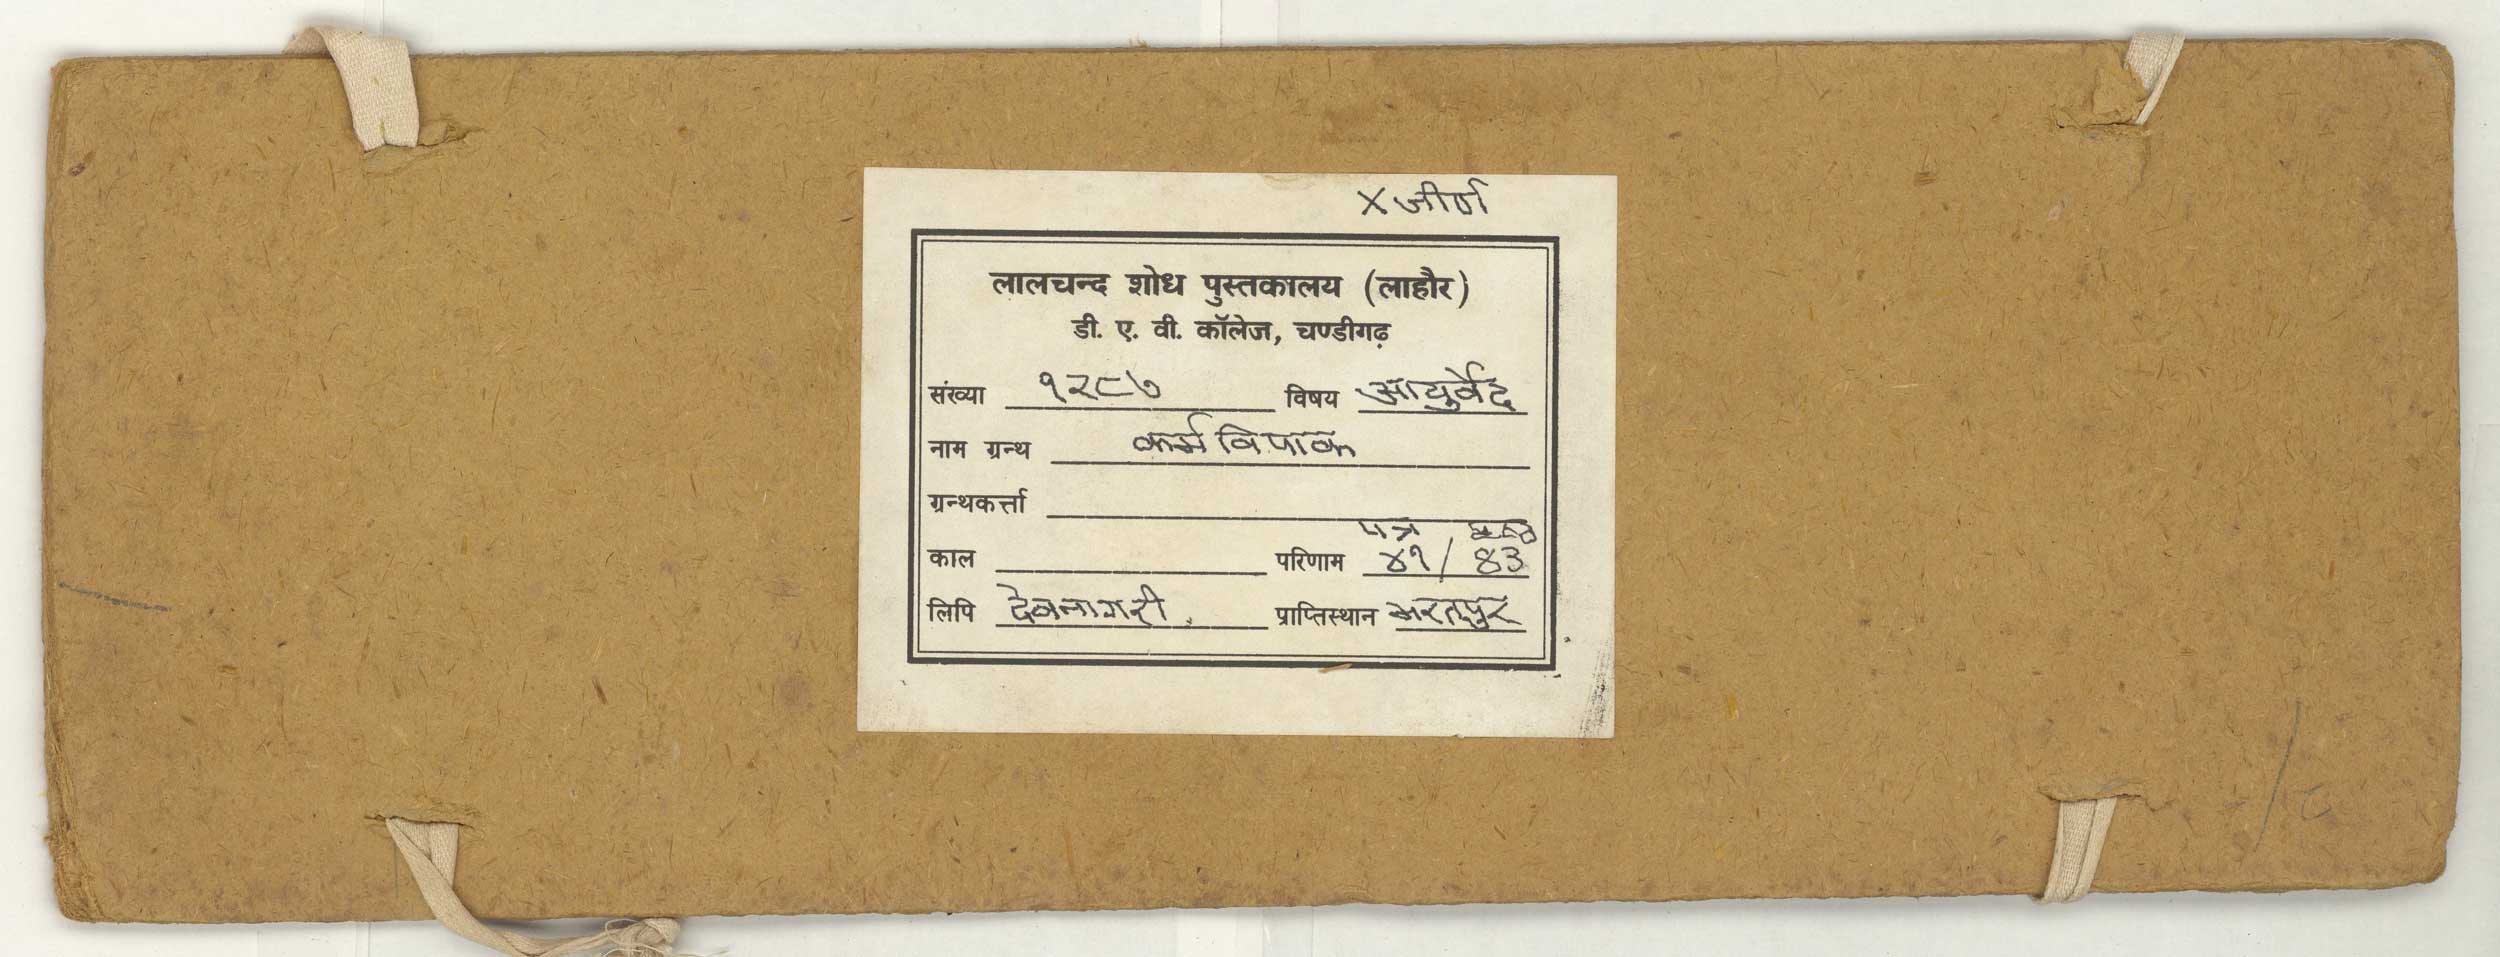 X जीर्ण
लालचन्द शोध पुस्तकालय (लाहौर)
डी. ए. वी. कॉलेज, चण्डीगढ़
संख्या १२८७ विषय आयुर्वेद
नाम ग्रन्थ कर्मविपाक
ग्रन्थकर्त्ता
पत्र
काल परिणाम ४१/४३
लिपि देवनागरी. प्राप्तिस्थान भरतपुर